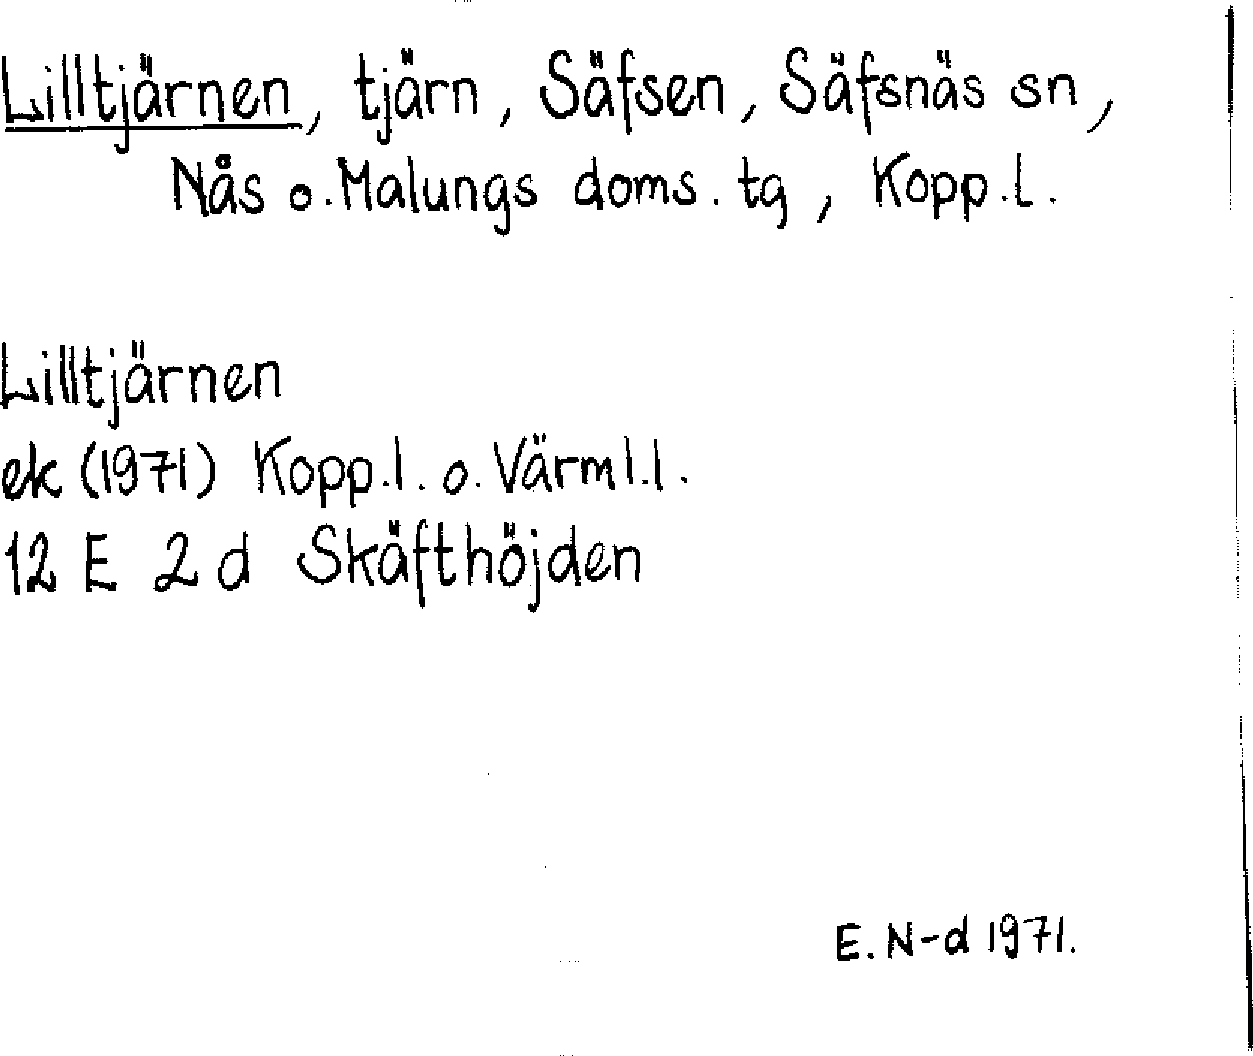 Lilltjärnen, tjärn, Säfsen, Säfsnäs sn,
Nås o. Malungs doms. tg, Kopp.l.
Lilltjärnen
ek (1971) Kopp.l. o. Värml.l.
12 E 2 d Skäfthöjden
E. N-d 1971.